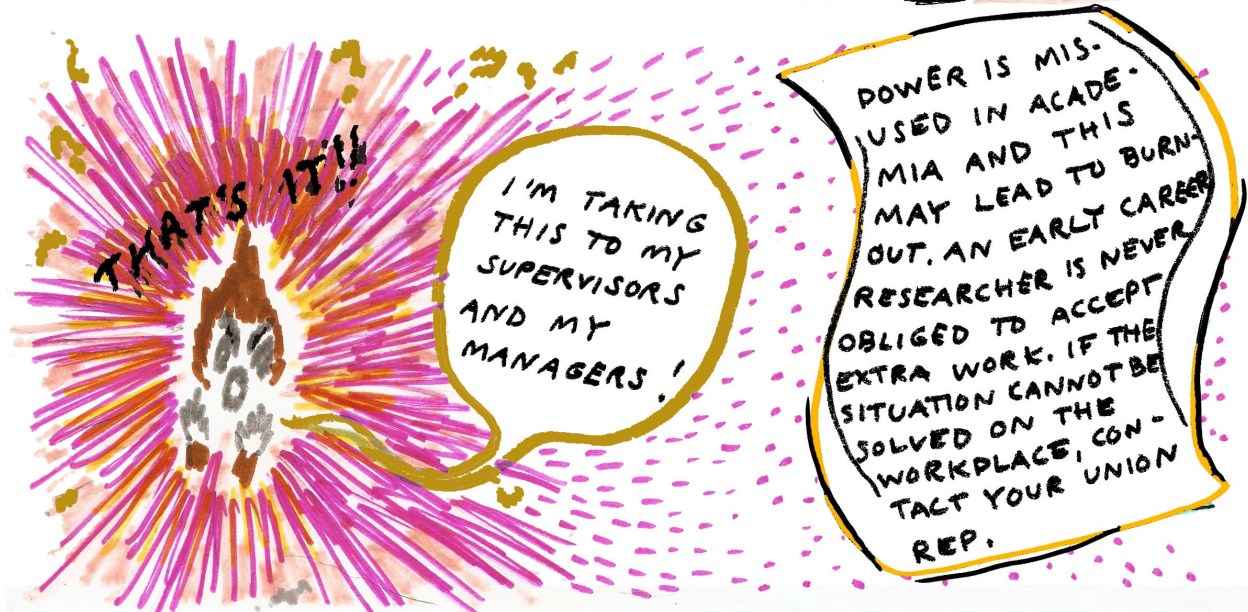 THAT'S IT!!
I'M TAKING
THIS TO MY
SUPERVISORS
AND MY
MANAGERS!
POWER IS MIS-
USED IN ACADE-
MIA AND THIS
MAY LEAD TO BURN-
OUT. AN EARLY CAREER
RESEARCHER IS NEVER
OBLIGED TO ACCEPT
EXTRA WORK. IF THE
SITUATION CANNOT BE
SOLVED ON THE
WORKPLACE, CON-
TACT YOUR UNION
REP.